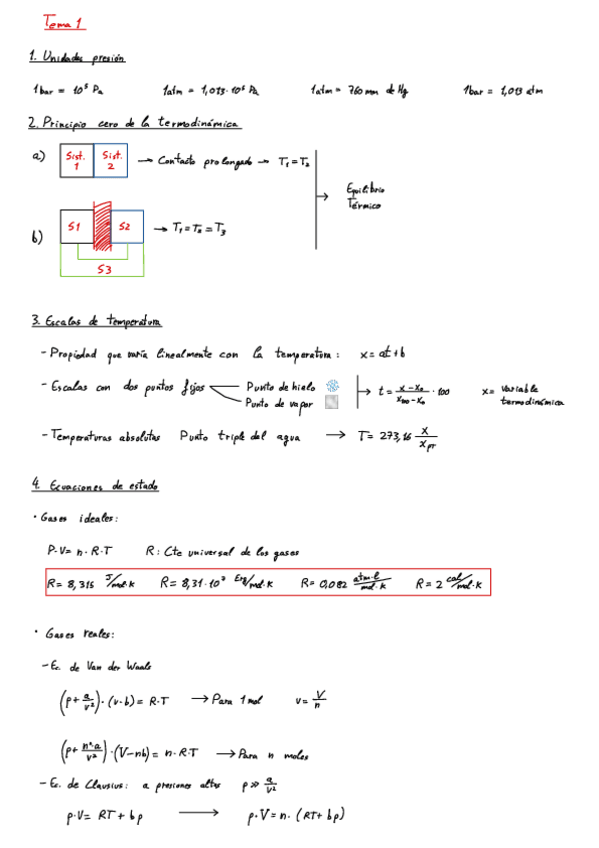 Tema 1
1. Unidades presión
1 bar = 10⁵ Pa 1 atm = 1,013·10⁵ Pa 1 atm = 760 mm de Hg 1 bar = 1,013 atm
2. Principio cero de la termodinámica
a) Sist. 1 Sist. 2 → Contacto prolongado → T₁ = T₂
Equilibrio
Térmico
b) S1 S2 → T₁ = T₂ = T₃
S3
3. Escalas de temperatura
- Propiedad que varía linealmente con la temperatura: x = at + b
- Escalas con dos puntos fijos Punto de hielo → t = (x - x₀)/(x₁₀₀ - x₀) · 100 x = variable termodinámica
Punto de vapor
- Temperaturas absolutas Punto triple del agua → T = 273,16 x/x_PT
4. Ecuaciones de estado
· Gases ideales:
P·V = n·R·T R: Cte universal de los gases
R = 8,315 J/mol·K R = 8,31·10⁷ Erg/mol·K R = 0,082 atm·l/mol·K R = 2 cal/mol·K
· Gases reales:
- Ec. de Van der Waals
(p + a/v²)·(v-b) = R·T → Para 1 mol v = V/n
(p + n²·a/V²)·(V-nb) = n·R·T → Para n moles
- Ec. de Clausius: a presiones altas p >> a/v²
p·v = RT + bp → p·V = n·(RT + bp)